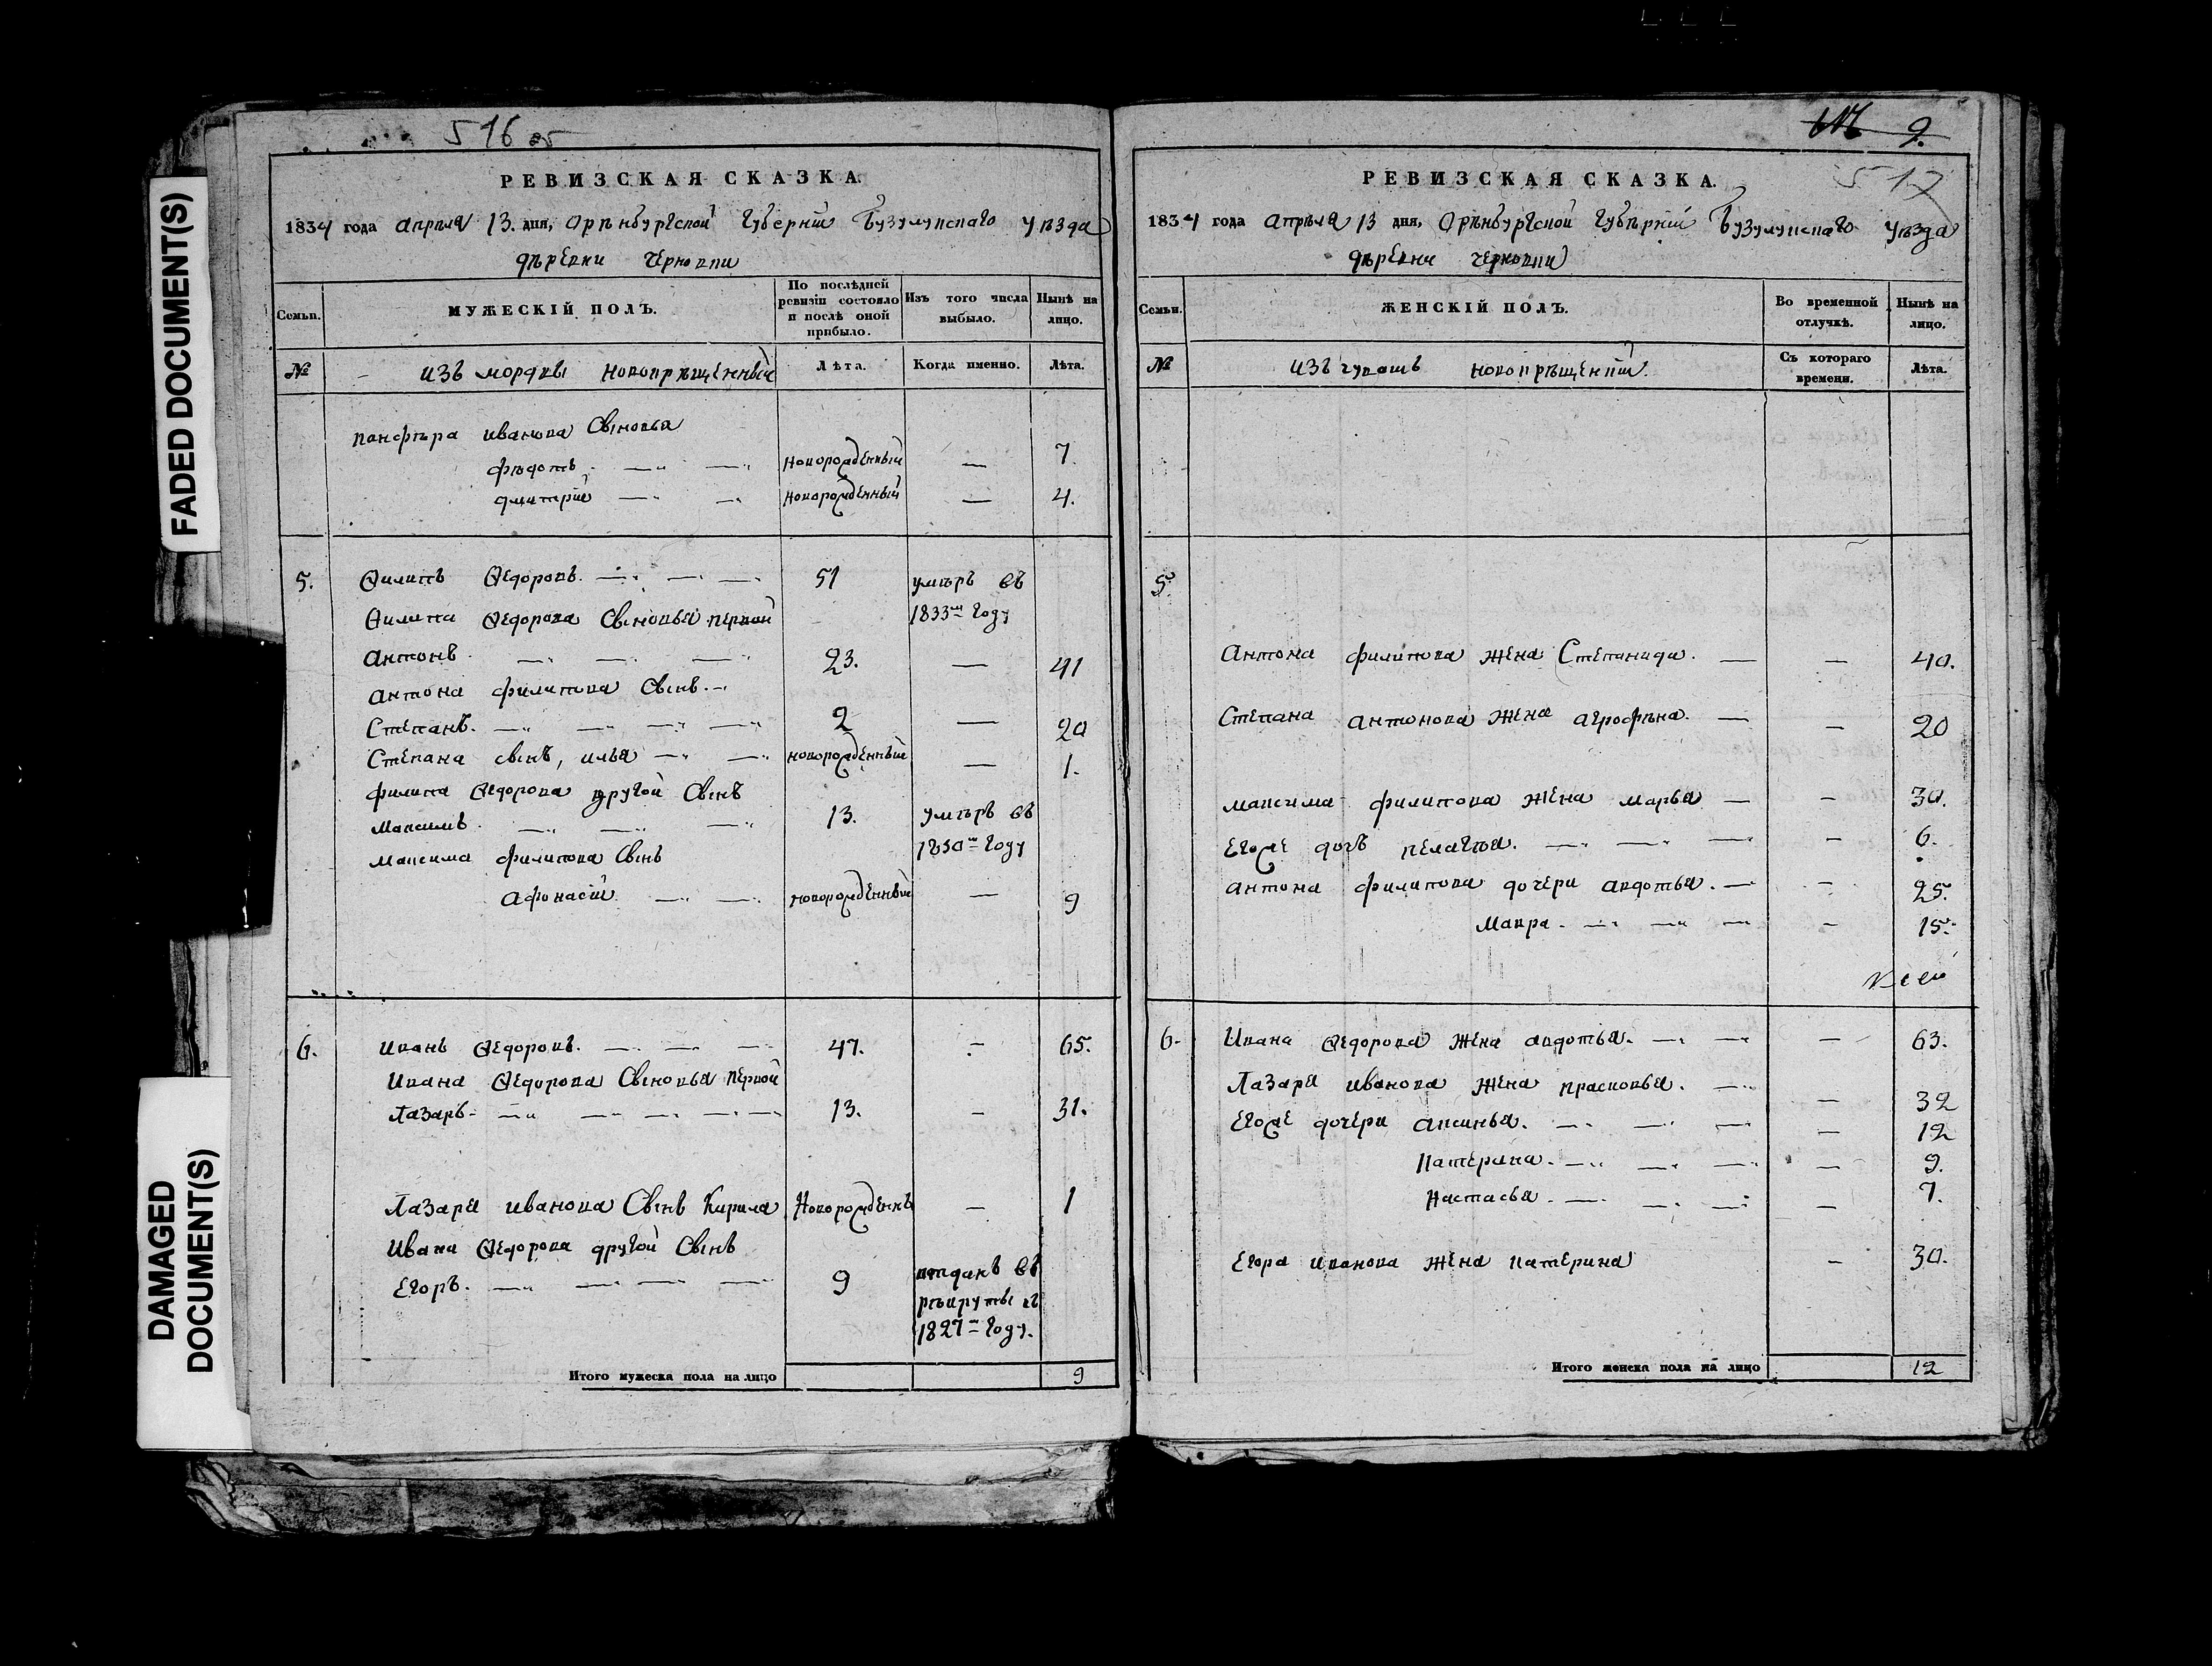 FADED DOCUMENT(S)
DAMAGED DOCUMENT(S)
516 об
РЕВИЗСКАЯ СКАЗКА
1834 года апреля 13. дня, Орѣнбургской Губернии Бузулукскаго уѣзда
дѣревни черновки
Семьи.
МУЖЕСКІЙ ПОЛЪ.
По послѣдней ревизіи состояло и послѣ оной прибыло.
Изъ того числа выбыло.
Нынѣ на лицо.
№
изъ мордвы новокрѣщенный
Лѣта.
Когда именно.
Лѣта.
панфѣра иванова Сыновья
фѣдотъ новорожденный — 7.
дмитрий новорожденный — 4.
5. Филипъ Ѳедоровъ. 51 умѣръ въ
Филипа Ѳедорова Сыновья первой 1833м году
Антонъ 23. — 41
антона филипова Сынъ
Степанъ. 2 — 20
Степана сынъ, илья новорожденный — 1.
филипа Ѳедорова другой Сынъ
Максимъ 13. умѣръ въ
1830м году
максима филипова Сынъ
Афонасий новорожденный — 9
6. Иванъ Ѳедоровъ. 47. — 65.
Ивана Ѳедорова Сыновья первой
Лазарь 13. — 31.
Лазаря иванова Сынъ Кирила Новорожденнъ — 1
Ивана Ѳедорова другой Сынъ
Егоръ. 9 отданъ въ
рѣкруты въ
1827м году.
Итого мужеска пола на лицо 9
9.
517
РЕВИЗСКАЯ СКАЗКА.
1834 года апрѣля 13 дня, Орѣнбургской Губѣрнии Бузулукскаго уѣзда
дѣревни черновки
Семьи.
ЖЕНСКІЙ ПОЛЪ.
Во временной отлучкѣ.
Нынѣ на лицо.
№
изъ чувашъ новокрѣщенни.
Съ котораго времени.
Лѣта.
5.
Антона филипова жена Степанида. — — 40.
Степана антонова жена агрофѣна. — — 20
максима филипова жена марья — — 30.
Егоже дочь пелагѣя. — 6.
антона филипова дочери авдотья. — — 25.
Мавра. — 15.
6. Ивана Ѳедорова жена авдотья. — 63.
Лазаря иванова жена прасковья. — 32
Егоже дочери аксинья. — 12
Катерина. — 9.
Настасья. — 7.
Егора иванова жена катерина — 30.
Итого женска пола на лицо 12